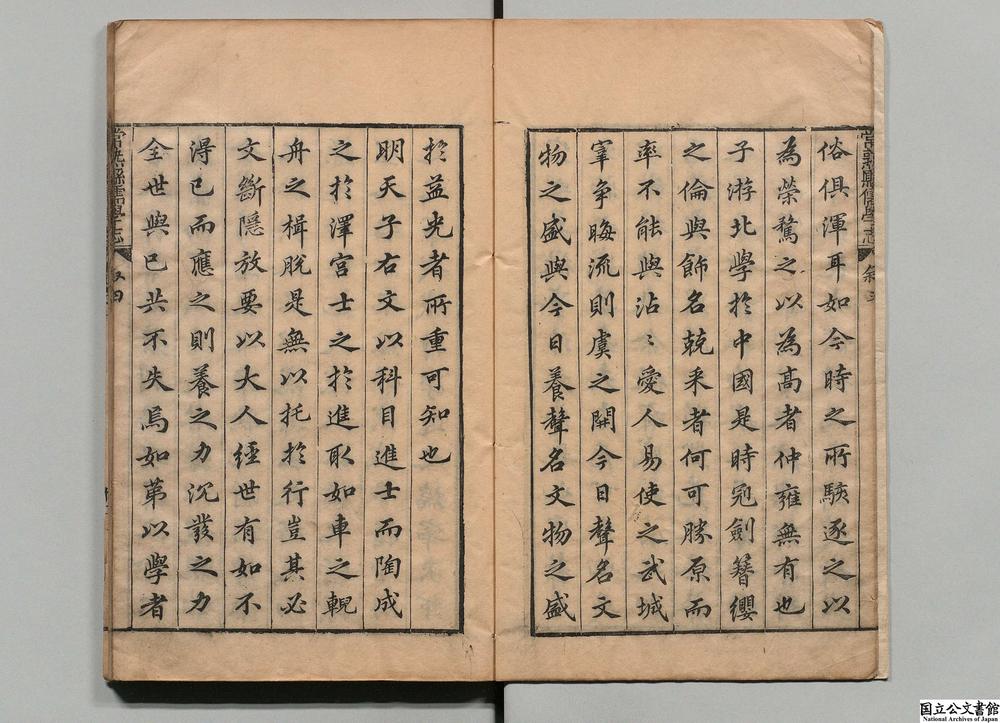 常熟縣儒學志 敘三
俗俱渾耳如今時之所駭逐之以
為榮騖之以為高者仲雍無有也
子游北學於中國是時冠劍簪纓
之倫與飾名兢采者何可勝原而
率不能與沾〻愛人易使之武城
宰爭晦流則虞之開今日聲名文
物之盛與今日養聲名文物之盛
於益光者所重可知也
明天子右文以科目進士而陶成
之於澤宮士之於進取如車之輗
舟之楫脫是無以托於行豈其必
文斷隱放要以大人經世有如不
得已而應之則養之力沉發之力
全世與己共不失焉如第以學者
常熟縣儒學志 敘四
国立公文書館
National Archives of Japan